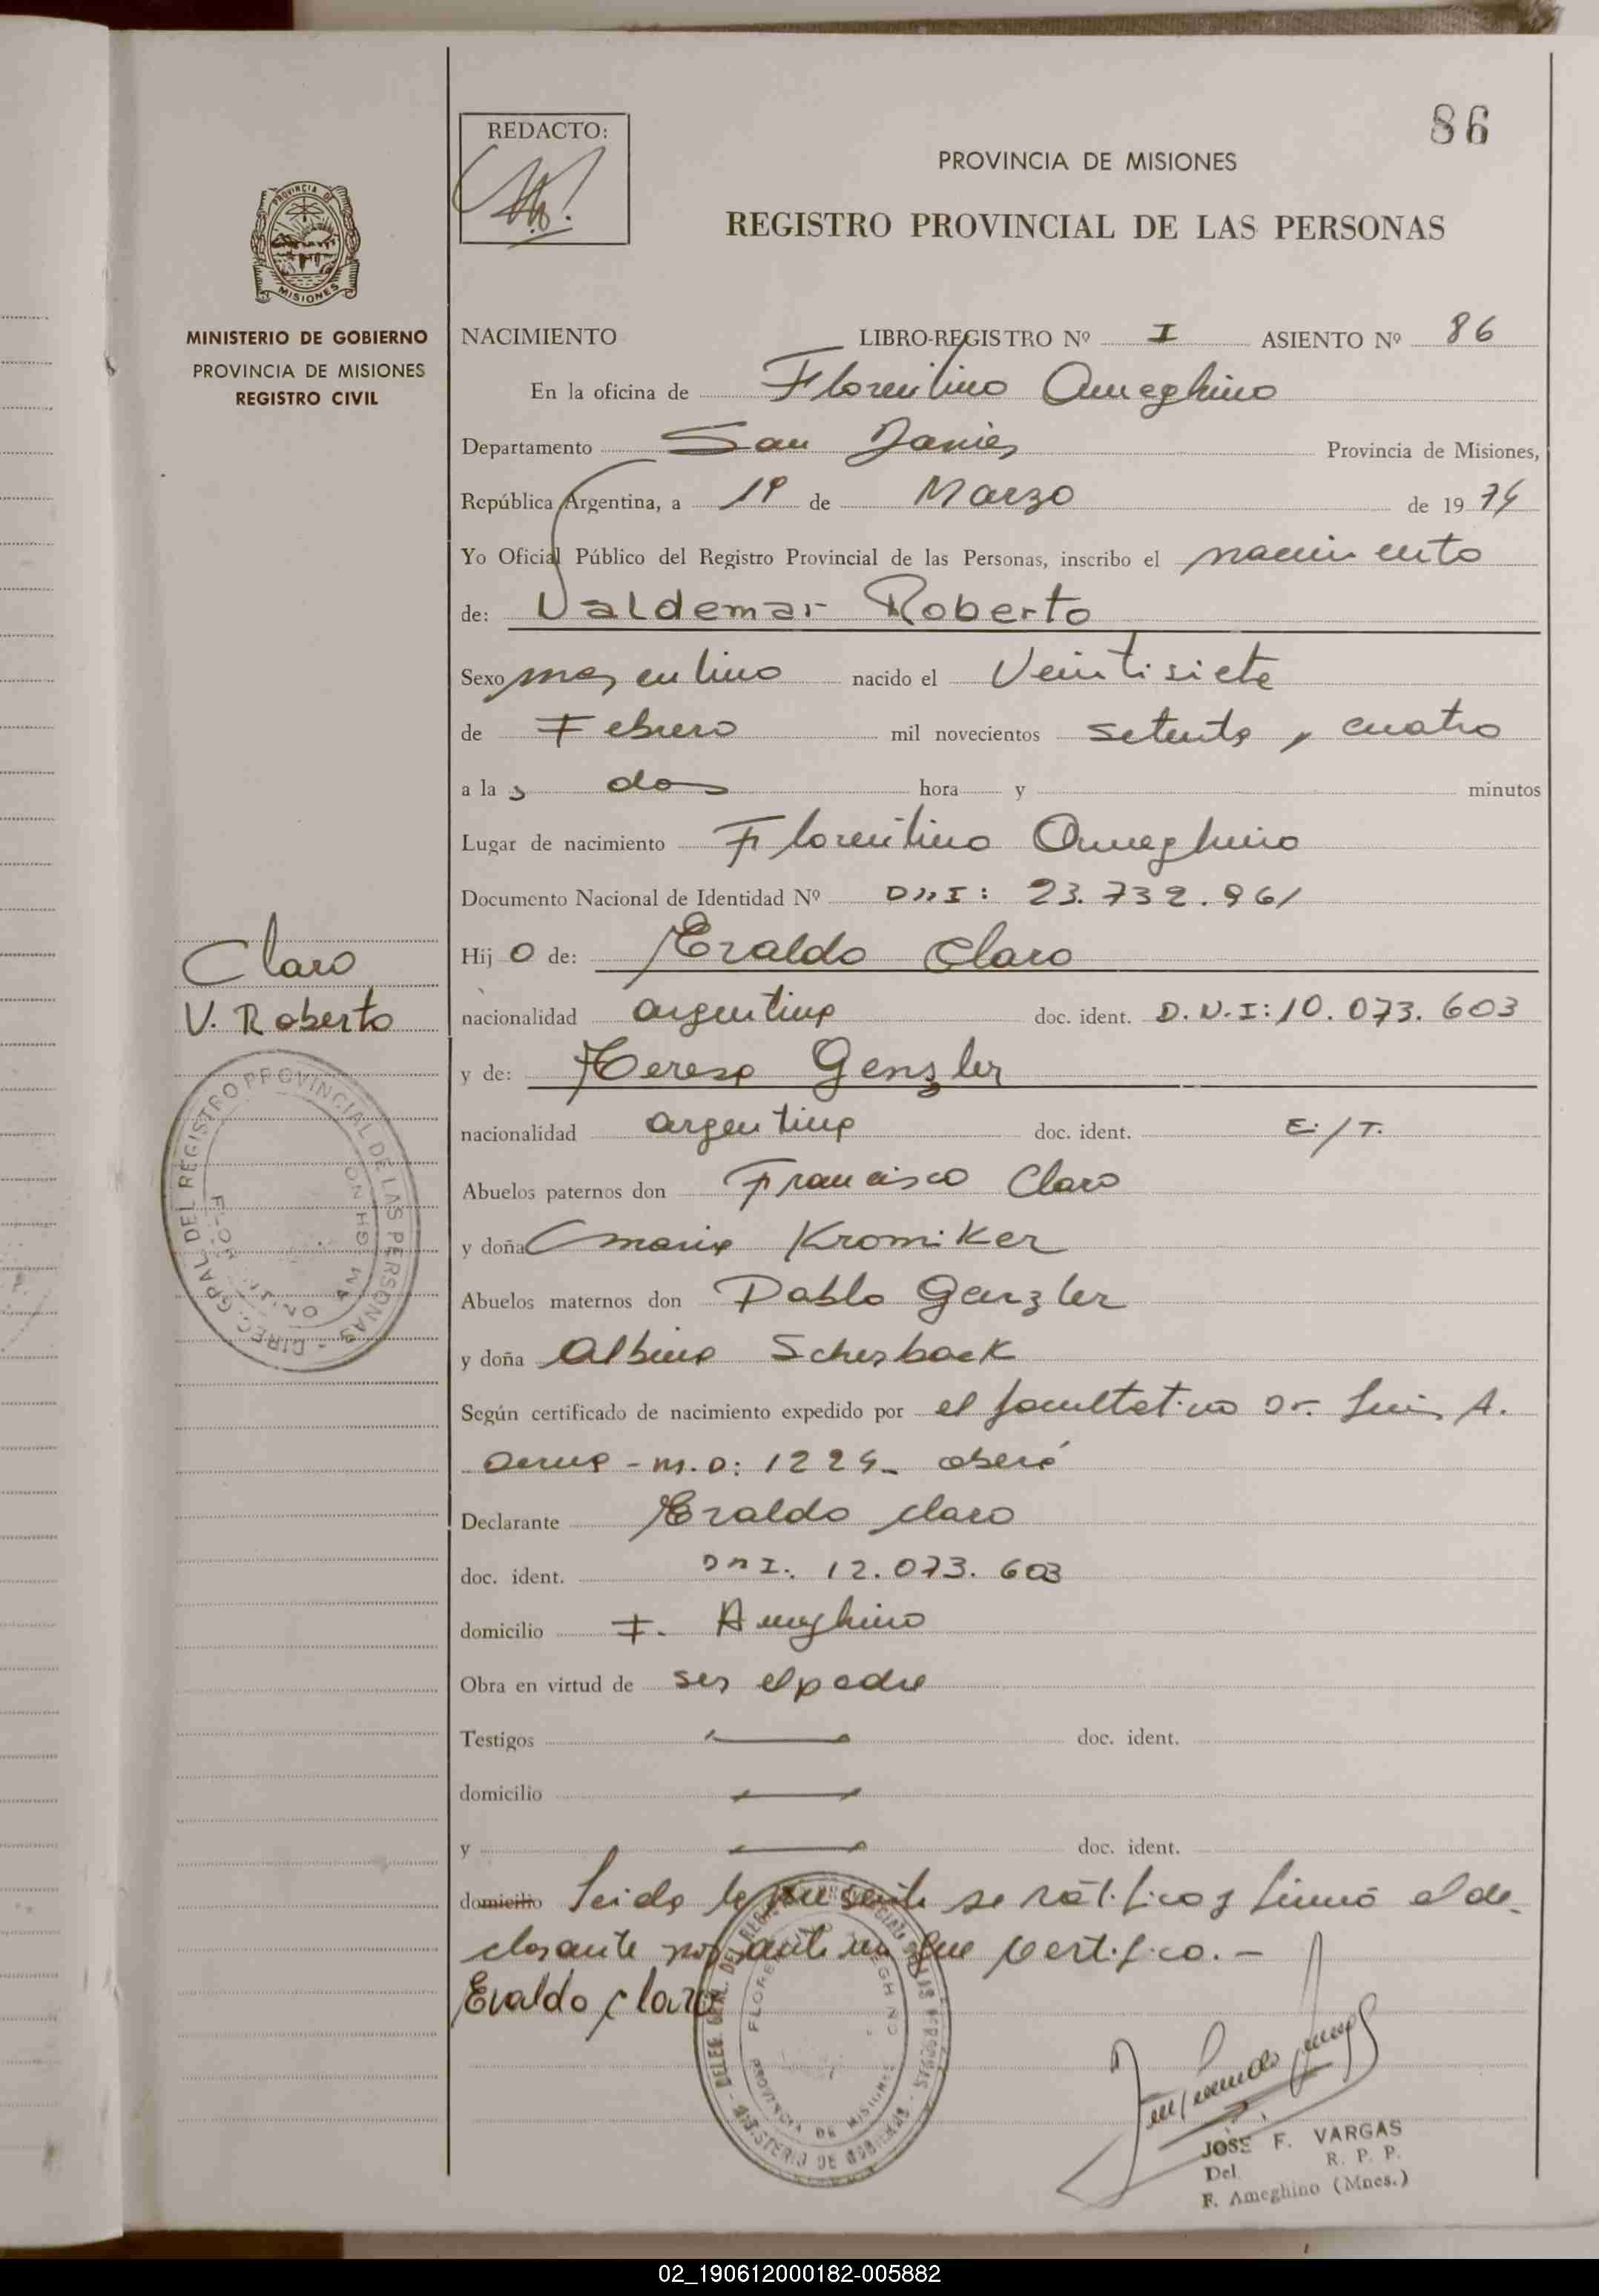 86
REDACTO:
PROVINCIA DE MISIONES
REGISTRO PROVINCIAL DE LAS PERSONAS
PROVINCIA DE
MISIONES
MINISTERIO DE GOBIERNO
PROVINCIA DE MISIONES
REGISTRO CIVIL
NACIMIENTO LIBRO-REGISTRO Nº I ASIENTO Nº 86
En la oficina de Florentino Ameghino
Departamento San Javier Provincia de Misiones,
República Argentina, a 1º de Marzo de 1974
Yo Oficial Público del Registro Provincial de las Personas, inscribo el nacimiento
de: Valdemar Roberto
Sexo masculino nacido el Veintisiete
de Febrero mil novecientos setenta y cuatro
a las dos hora y minutos
Lugar de nacimiento Florentino Ameghino
Documento Nacional de Identidad Nº DNI: 23.732.961
Claro
V. Roberto
Hijo de: Evaldo Claro
nacionalidad argentina doc. ident. D.N.I: 10.073.603
y de: Teresa Genzler
nacionalidad argentina doc. ident. E./T.
Abuelos paternos don Francisco Claro
y doña Maria Kromiker
Abuelos maternos don Pablo Genzler
y doña Albina
Según certificado de nacimiento expedido por el facultativo Dr. Luis A.
- M.O: 1224- Oberá
Declarante Evaldo Claro
doc. ident. DNI: 12.073.603
domicilio F. Ameghino
Obra en virtud de ser el padre
Testigos doc. ident.
domicilio
y doc. ident.
domicilio Leida la presente se ratifico y firmó el de-
clarante por ante mi que certifico.-
Evaldo Claro
DIREC. GRAL DEL REGISTRO PROVINCIAL DE LAS PERSONAS
FLORENTINO AMEGHINO
FLORENTINO AMEGHINO
PROVINCIA DE MISIONES
MINISTERIO DE GOBIERNO
JOSE F. VARGAS
Del. R. P. P.
F. Ameghino (Mnes.)
02_190612000182-005882